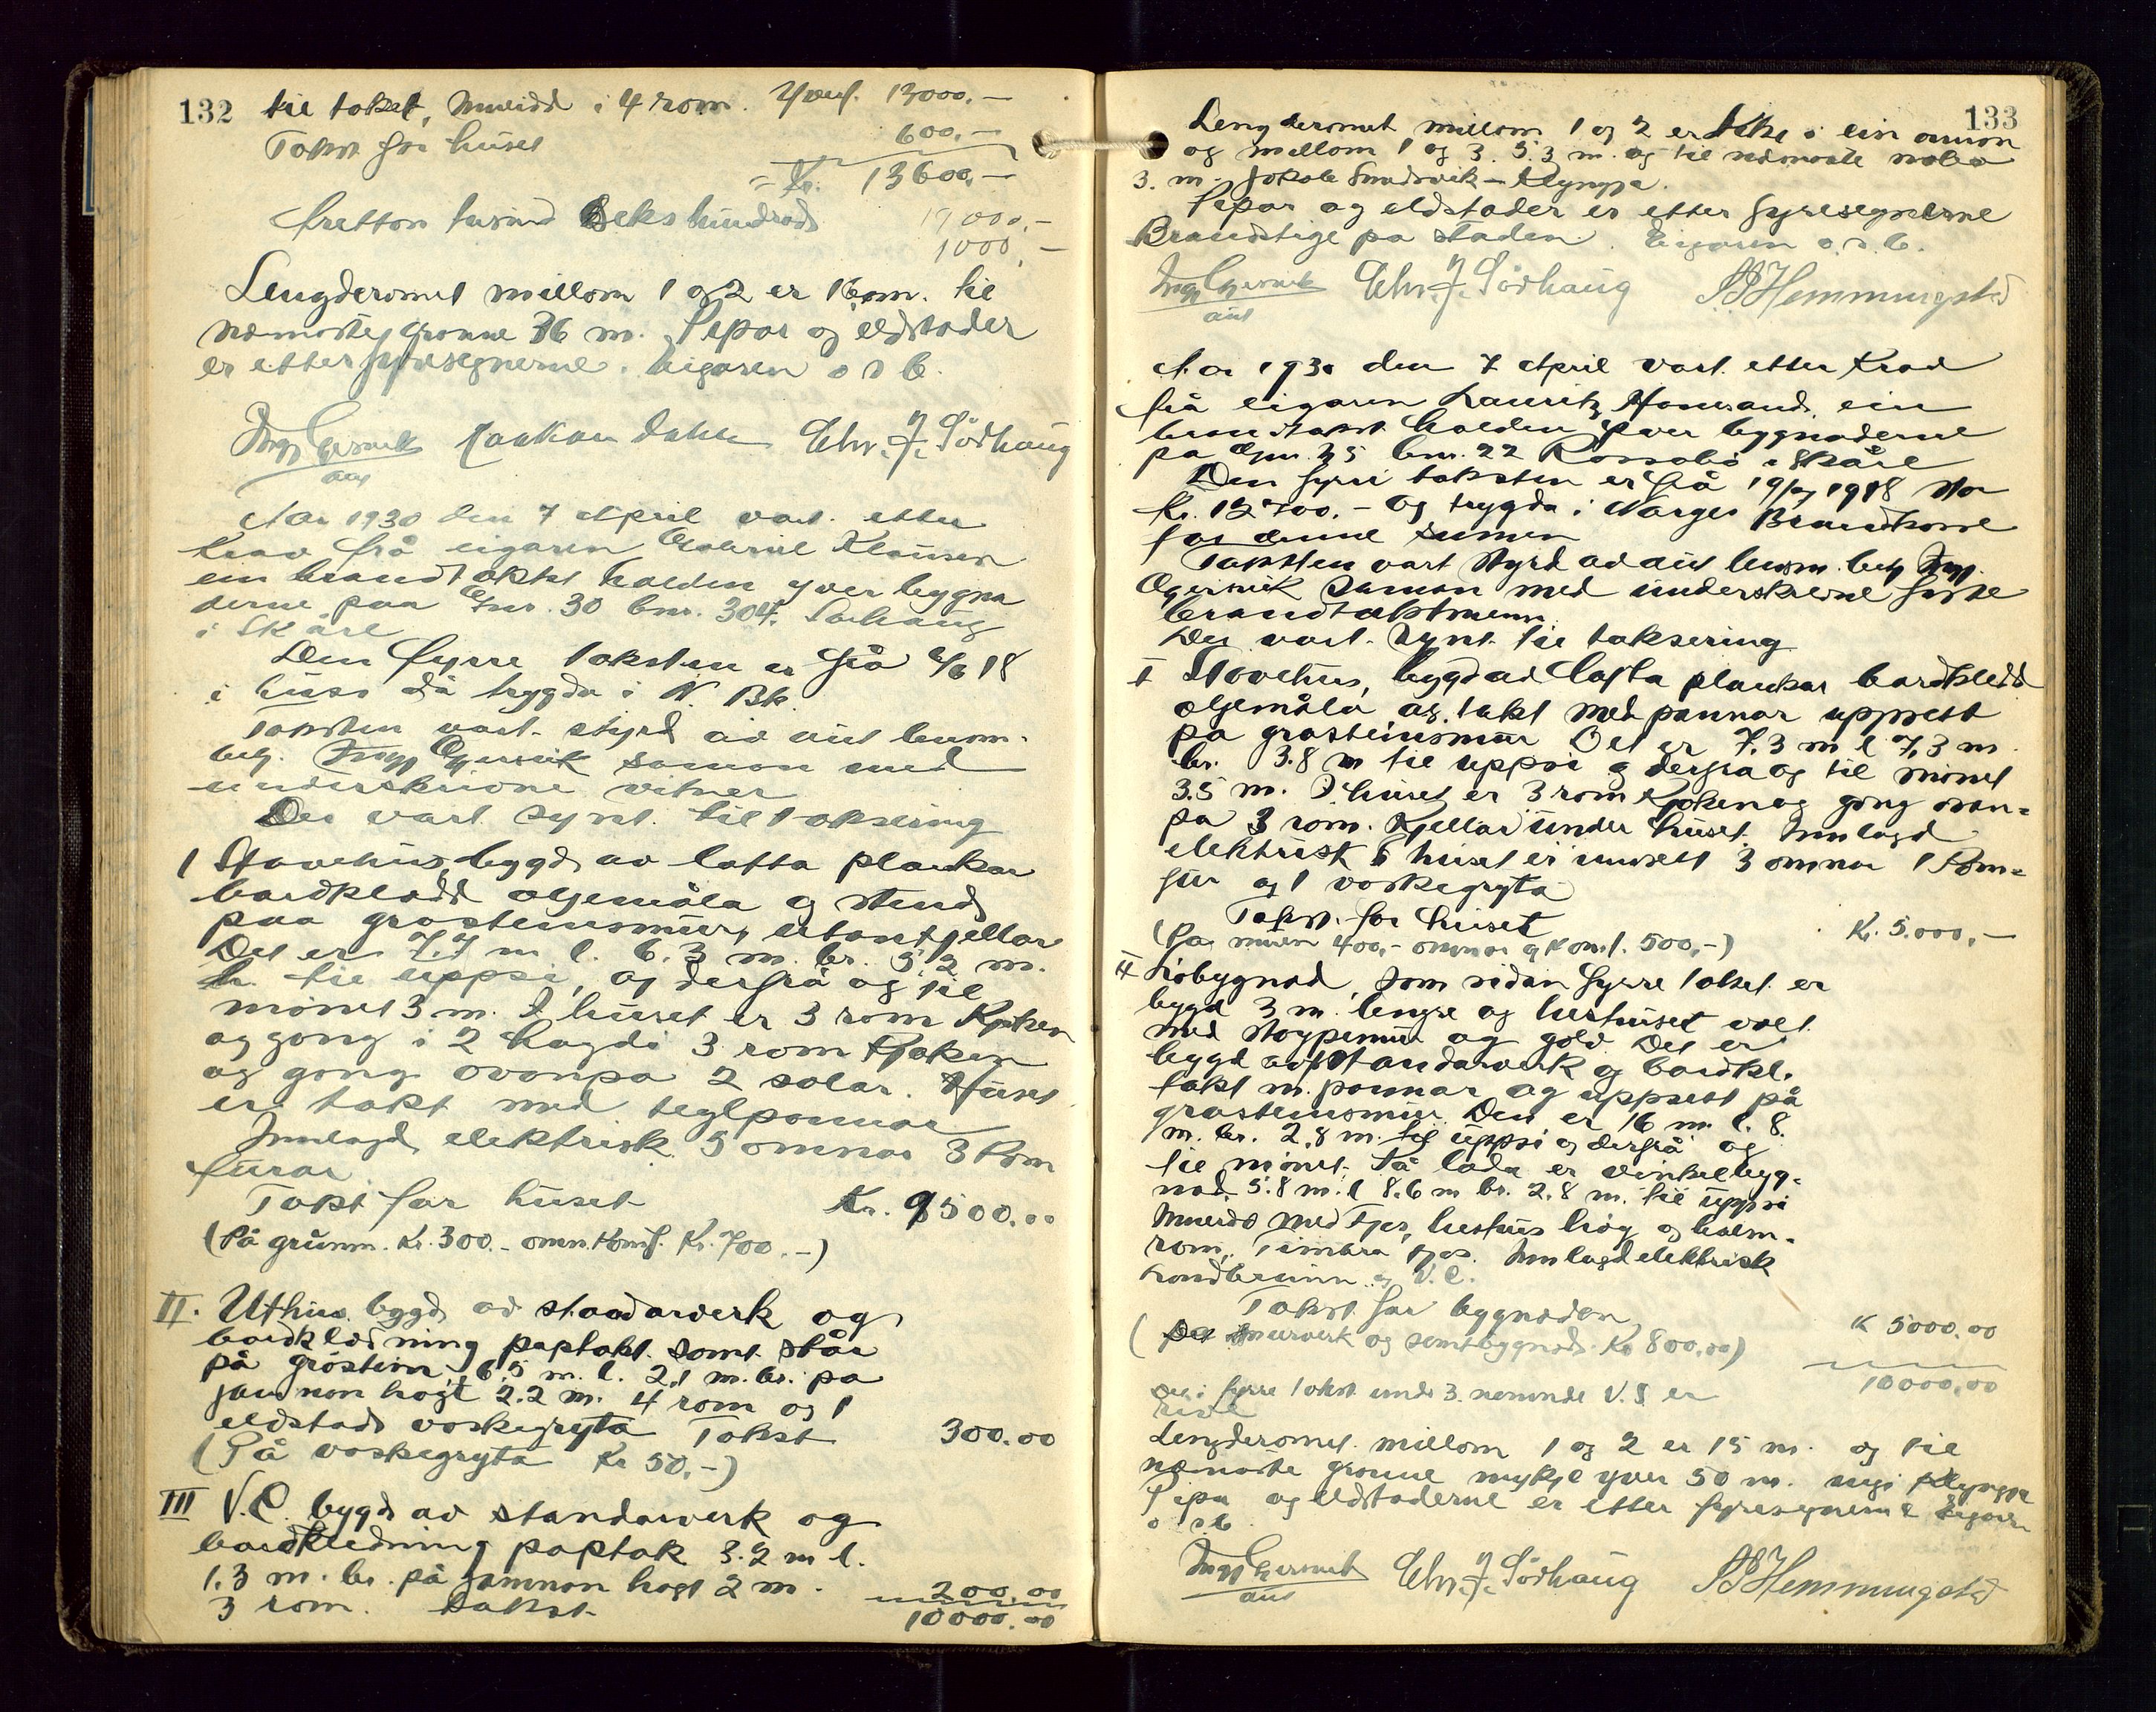 132
til taket, innreidd i 4 rom. Yverf. 13000.–
Takst for huset 600.–
= Kr. 13600,–
tretton tusund seks hundrad 19000,–
1000,–
Lengderomet millom 1 og 2 er 16 m. til
næmaste granne 36 m. Pepar og eldstader
er etter fyresegnerne. Eigaren o s b.
Chr. J. Sörhaug
aut
Aar 1930 den 7 april vart etter
krav frå eigaren Gabriel Klausen
ein brandtakst halden yver bygna
derne paa Gnr. 30 bnr. 304. Sørhaug
i Skåre
Den fyrre taksten er frå 18
i huso då trygda i N. Bk.
Taksten vart styrd av aut lensm.
betj. Ingv Gjersvik saman med
underskrivne vitner
Der vart synt til taksering
1 Stovehus, bygd av lafta plankar
bordkledd oljemåla og stend
paa grasteinsmur, utan kjellar
Det er 7.7 m l. 6.3 m. br. 5.2 m.
h. til uppsi, og derfrå og til
mønet 3 m. I huset er 3 rom Kjøken
og gong i 2 høgdi 3 rom kjøken
og gong ovanpa 2 salar. Huset
er takt med teglpannar
Innlagd elektrisk 5 omnar 3 kom
furar
Takst for huset Kr. 9500.00
(På grunnm. Kr. 300.– omn. komf. Kr. 700.–)
II. Uthus bygd av standarverk og
bordklædning paptakt. som står
på gråstein, 6.5 m. l. 2.1 m. br. pa
jamnon høgt 2.2 m. 4 rom og 1
eldstad vaskegryta Takst 300.00
(På vaskegryta Kr 50.–)
III V.C. bygd av standarverk og
bordkledning paptak 3.2 m l.
1.3 m. br. på jamnon høgt 2 m.
3 rom. Takst 200.00
10000.00
133
Lengderomet millom 1 og 2 er like i ein annon
og millom 1 og 3. 5.3 m. og til næmaste nabo
3. m. Jokob Sundsvik – klyngja.
Pepar og eldstader er etter fyresegnerne
Brandstige pa staden. Eigaren o.s.b.
aut Chr. J. Sörhaug Hemmingstad
Aar 1930 den 7 april vart etter krav
frå eigaren Lauritz ein
brandtakst halden yver bygnaderne
pa Gnr. 35 bnr. 22 Rossabø i Skåre
Den fyrre taksten er frå 1918 stor
kr. 12700.– og trygda i Norges Brandkasse
for denne sumen
Taksten vart styrd av aut lensm. betj Ingv.
Gjersvik saman med underskrivne faste
brandtakstmenn.
Der vart synt til taksering
I Stovehus, bygd av lafta plankar bordkledd
oljemåla og takt med pannar uppsett
på grasteinsmur Det er 7.3 m l 7.3 m
br. 3.8 m til uppsi og derfra og til mønet
3.5 m. I huset er 3 rom Kjøken og gong ovan-
pa 3 rom. Kjellar under huset. Innlagd
elektrisk I huset er innsett 3 omnar 1 kom-
fur og 1 vaskegryta
Takst for huset Kr. 5.000,–
(Pa muren 400,– omnar og komf. 500,–)
II Løbygnad, som sidan fyrre takst er
bygd 3 m. lengre og hesthuset vølt
med støypemur og golv. Det er
bygd av standarverk og bordkl.
takt m. pannar og uppsett på
grasteinsmur. Den er 16 m. l. 8.
m. br. 2,8 m. til uppsi og derfrå og
til mønet. På lada er vinkelbyg-
nad 5.8 m. l 8.6 m br. 2.8 m. til uppsi
Innreidd med fjøs, hesthus høy og halm-
rom. Timbra fjøs. Innlagd elektrisk
Landbrunn og V.C.
Takst for bygnaden K 5000.00
(På murverk og sementbygnad Kr 800.00)
10000.00
Det i fyrre takst under 3. nemnde V.S er
rive
Lengderomet millom 1 og 2 er 15 m. og til
næmaste granne mykje yver 50 m. ingi klyngja
Pepa og eldstaderne er etter fyresegnerne Eigaren
o s b
aut Chr. J. Sörhaug Hemmingstad